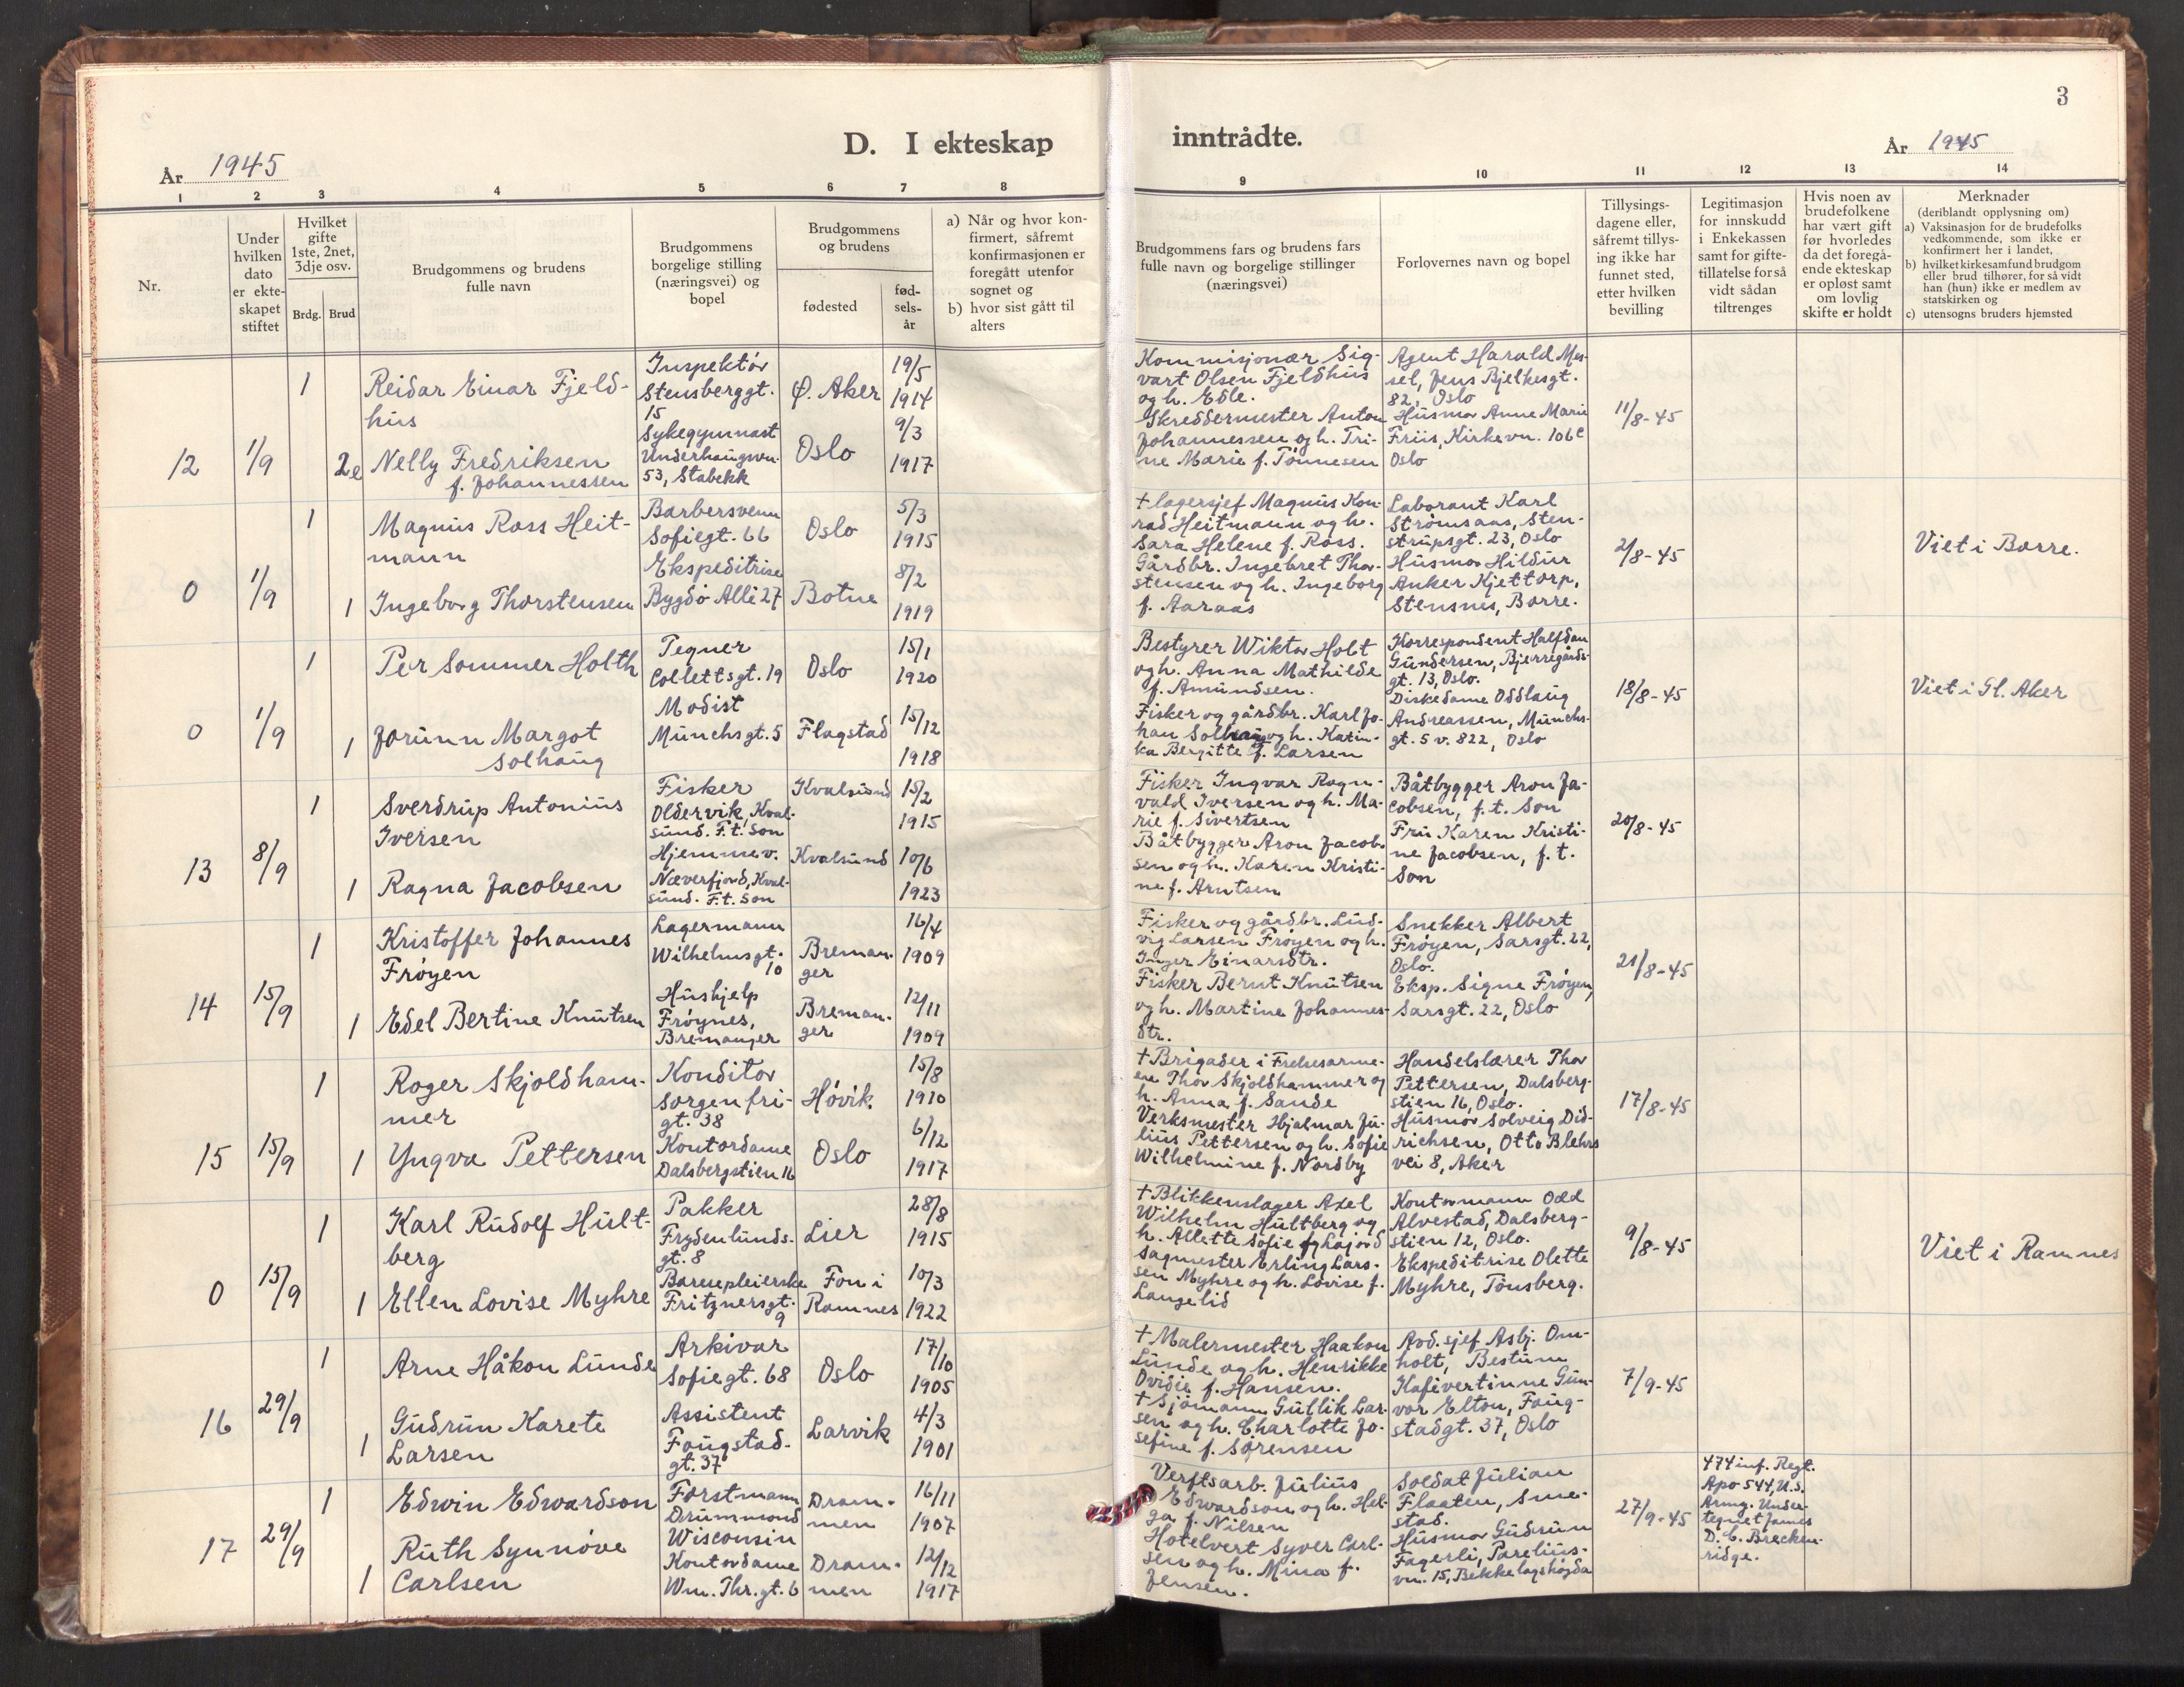 3
D. I ekteskap
inntrådte.
År 1945
År 1945
1
2
3
4
5
6
7
8
9
10
11
12
13
14
Nr.
Under
hvilken
dato
er ekte-
skapet
stiftet
Hvilket
gifte
1ste, 2net,
3dje osv.
Brdg.
Brud
Brudgommens og brudens
fulle navn
Brudgommens
borgelige stilling
(næringsvei) og
bopel
Brudgommens
og brudens
fødested
fød-
sels-
år
a) Når og hvor kon-
firmert, såfremt
konfirmasjonen er
foregått utenfor
sognet og
b) hvor sist gått til
alters
Brudgommens fars og brudens fars
fulle navn og borgelige stillinger
(næringsvei)
Forlovernes navn og bopel
Tillysings-
dagene eller,
såfremt tillys-
ing ikke har
funnet sted,
etter hvilken
bevilling
Legitimasjon
for innskudd
i Enkekassen
samt for gifte-
tillatelse for så
vidt sådan
tiltrenges
Hvis noen av
brudefolkene
har vært gift
før hvorledes
da det foregå-
ende ekteskap
er opløst samt
om lovlig
skifte er holdt
Merknader
(deriblandt opplysning om)
a) Vaksinasjon for de brudefolks
vedkommende, som ikke er
konfirmert her i landet,
b) hvilket kirkesamfund brudgom
eller brud tilhører, for så vidt
han (hun) ikke er medlem av
statskirken og
c) utensogns bruders hjemsted
12
1/9
1
2e
Reidar Einar Fjeld-
hus
Nelly Fredriksen
f. Johannessen
Inspektør
Stensberggt.
15
Sykegymnast
Underhaugsvn.
53, Stabekk
Ø. Aker
Oslo
19/5
1914
9/3
1917
Kommisjonær Sig-
vart Olsen Fjeldhus
og h. Edle.
Skreddermester Anton
Johannessen og h. Tri-
ne Marie f. Tønnesen
Agent Harald Mes-
sel, Jens Bjelkesgt.
82, Oslo
Husmor Anne Marie
Friis, Kirkevn. 106c
Oslo
11/8-45
0
1/9
1
1
Magnus Ross Heit-
mann
Ingeborg Thorstensen
Barbersvenn
Sofiegt. 66
Ekspeditrise
Bygdø Allé 27
Oslo
Botne
5/3
1915
8/2
1919
† Lagersjef Magnus Kon-
rad Heitmann og h.
Sara Helene f. Ross.
Gårdbr. Ingebret Thor-
stensen og h. Ingeborg
f. Aaraas
Laborant Karl
Strømsaas, Sten-
strupsgt. 23, Oslo
Husmor Hildur
Anker Kjettorp,
Stensnes, Borre.
2/8-45
Viet i Borre.
0
1/9
1
1
Per Sommer Holth
Jorunn Margot
Solhaug
Tegner
Collettsgt. 19
Modist
Munchsgt. 5
Oslo
Flagstad
15/1
1920
15/12
1918
Bestyrer Wiktor Holt
og h. Anna Mathilde
f. Amundsen.
Fisker og gårdbr. Karl Jo-
han Solhaug og h. Katin-
ka Bergitte f. Larsen
Korrespondent Halfdan
Gundersen, Bjerregårds-
gt. 13, Oslo.
Diskedame Oddlaug
Andreassen, Munchs-
gt. 5 v. 822, Oslo
18/8-45
Viet i Gl. Aker
13
8/9
1
1
Sverdrup Antonius
Iversen
Ragna Jacobsen
Fisker
Oldervik, Kval-
sund. F.t. Son
Hjemmev.
Næverfjord, Kval-
sund. F.t. Son
Kvalsund
Kvalsund
15/2
1915
10/6
1923
Fisker Ingvar Ragn-
vald Iversen og h. Ma-
rie f. Sivertsen
Båtbygger Aron Jacob-
sen og h. Karen Kristi-
ne f. Arntsen
Båtbygger Aron Ja-
cobsen, f.t. Son
Fru Karen Kristi-
ne Jacobsen, f.t.
Son
20/8-45
14
15/9
1
1
Kristoffer Johannes
Frøyen
Edel Bertine Knutsen
Lagermann
Wilhelmsgt.
10
Hushjelp
Frøynes,
Bremanger
Breman-
ger
Breman-
ger
16/4
1909
12/11
1909
Fisker og gårdbr. Lud-
vig Larsen Frøyen og h.
Inger Einarsdtr.
Fisker Bernt Knutsen
og h. Martine Johannes-
dtr.
Snekker Albert
Frøyen, Sarsgt. 22,
Oslo.
Eksp. Signe Frøyen,
Sarsgt. 22, Oslo
21/8-45
15
15/9
1
1
Roger Skjoldham-
mer
Yngva Pettersen
Konditor
Sorgenfri-
gt. 38
Kontordame
Dalsbergstien 16
Høvik
Oslo
15/8
1910
6/12
1917
† Brigader i Frelsesarme-
en Thor Skjoldhammer og
h. Anna f. Sande
Verksmester Hjalmar Ju-
lius Pettersen og h. Sofie
Wilhelmine f. Nordby
Handelslærer Thor
Pettersen, Dalsberg-
stien 16, Oslo.
Husmor Solveig Did-
richsen, Otto Blehrs
vei 8, Aker
17/8-45
0
15/9
1
1
Karl Rudolf Hult-
berg
Ellen Lovise Myhre
Pakker
Frydenlunds-
gt. 8
Barnepleierske
Fritznersgt.
9
Lier
Fon i
Ramnes
28/8
1915
10/3
1922
† Blikkenslager Axel
Wilhelm Hultberg og
h. Allette Sofie
Sagmester Erling Lars-
sen Myhre og h. Lovise f.
Langelid
Kontormann Odd
Alvestad, Dalsberg-
stien 12, Oslo.
Ekspeditrise Olette
Myhre, Tønsberg.
9/8-45
Viet i Ramnes
16
29/9
1
1
Arne Håkon Lunde
Gudrun Karete
Larsen
Arkivar
Sofiegt. 68
Assistent
Fougstad-
gt. 37
Oslo
Larvik
17/10
1905
4/3
1901
† Malermester Haakon
Lunde og h. Henrikke
Ovidie f. Hansen.
† Sjømann Gullik Lar-
sen og h. Charlotte Jo-
sefine f. Sørensen
Avd. sjef Asbj. Om-
holt, Bestum
Kafévertinne Gun-
vor Elton, Foug-
stadgt. 37, Oslo
7/9-45
17
29/9
1
1
Edwin Edwardson
Ruth Synnøve
Carlsen
Forstmann
Drummond
Wisconsin
Kontordame
Wm. Thr. gt. 6
Dram-
men
Dram-
men
16/11
1907
12/12
1917
Verftsarb. Julius
Edwardson og h. Hel-
ga f. Nilsen
Hotelvert Syver Carl-
sen og h. Mina f.
Jensen.
Soldat Julian
Flaaten, Sme-
stad.
Husmor Gudrun
Fagerli, Parelius-
vn. 15, Bekkelagshøgda
27/9-45
474 inf. Regt.
Apo 544, U.S.
Army. Under-
tegnet James
D. C. Brecken-
ridge.